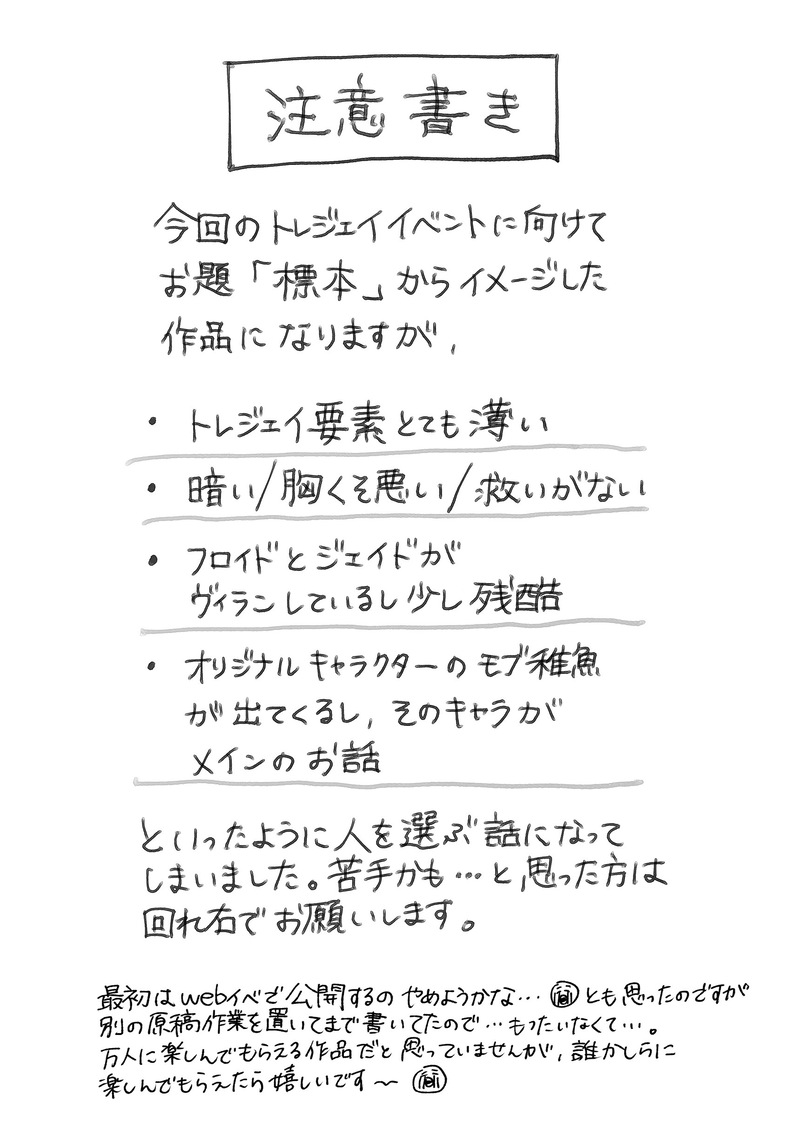 注意書き
今回のトレジェイイベントに向けて
お題「標本」からイメージした
作品になりますが,
・トレジェイ要素とても薄い
・暗い/胸くそ悪い/救いがない
・フロイドとジェイドが
ヴィランしているし少し残酷
・オリジナルキャラクターのモブ稚魚
が出てくるし,そのキャラが
メインのお話
といったように人を選ぶ話になって
しまいました。苦手かも…と,思った方は
回れ右でお願いします。
最初はwebイベで公開するのやめようかな…とも思ったのですが
別の原稿作業を置いてまで書いてたので…もったいなくて…。
万人に楽しんでもらえる作品だと思っていませんが,誰かしらに
楽しんでもらえたら嬉しいです〜